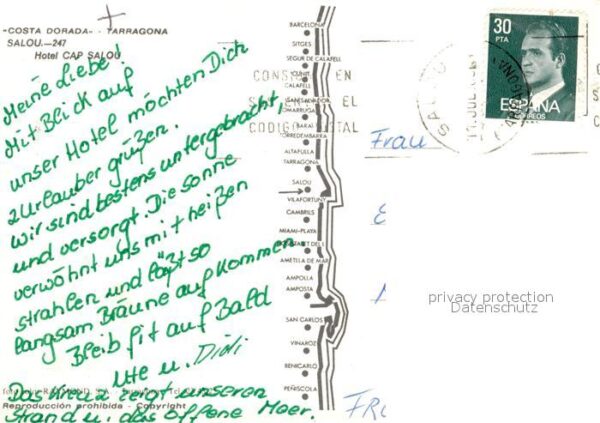 "COSTA DORADA" - TARRAGONA
SALOU.—247
Hotel CAP SALOU
Meine Liebe!
Mit Blick auf
unser Hotel möchten Dich
2 Urlauber grüßen.
Wir sind bestens untergebracht,
und versorgt. Die Sonne
verwöhnt uns mit heißen
strahlen und läßt so
langsam Bräune aufkommen
Bleib fit auf Bald
Ute u. Didi
Das Kreuz zeigt unseren
Strand u. das offene Meer.
Reproducción prohibida - Copyright
BARCELONA
SITGES
SEGUR DE CALAFELL
CUNIT
CALAFELL
SAN SALVADOR
TORREDEMBARRA
ALTAFULLA
TARRAGONA
SALOU
VILAFORTUNY
CAMBRILS
MIAMI-PLAYA
AMETLLA DE MAR
AMPOLLA
AMPOSTA
SAN CARLOS
VINAROZ
BENICARLO
PEÑISCOLA
CONSIGNE EN
EL
CODIGO POSTAL
SALOU
30
PTA
ESPAÑA
CORREOS
Frau
privacy protection
Datenschutz